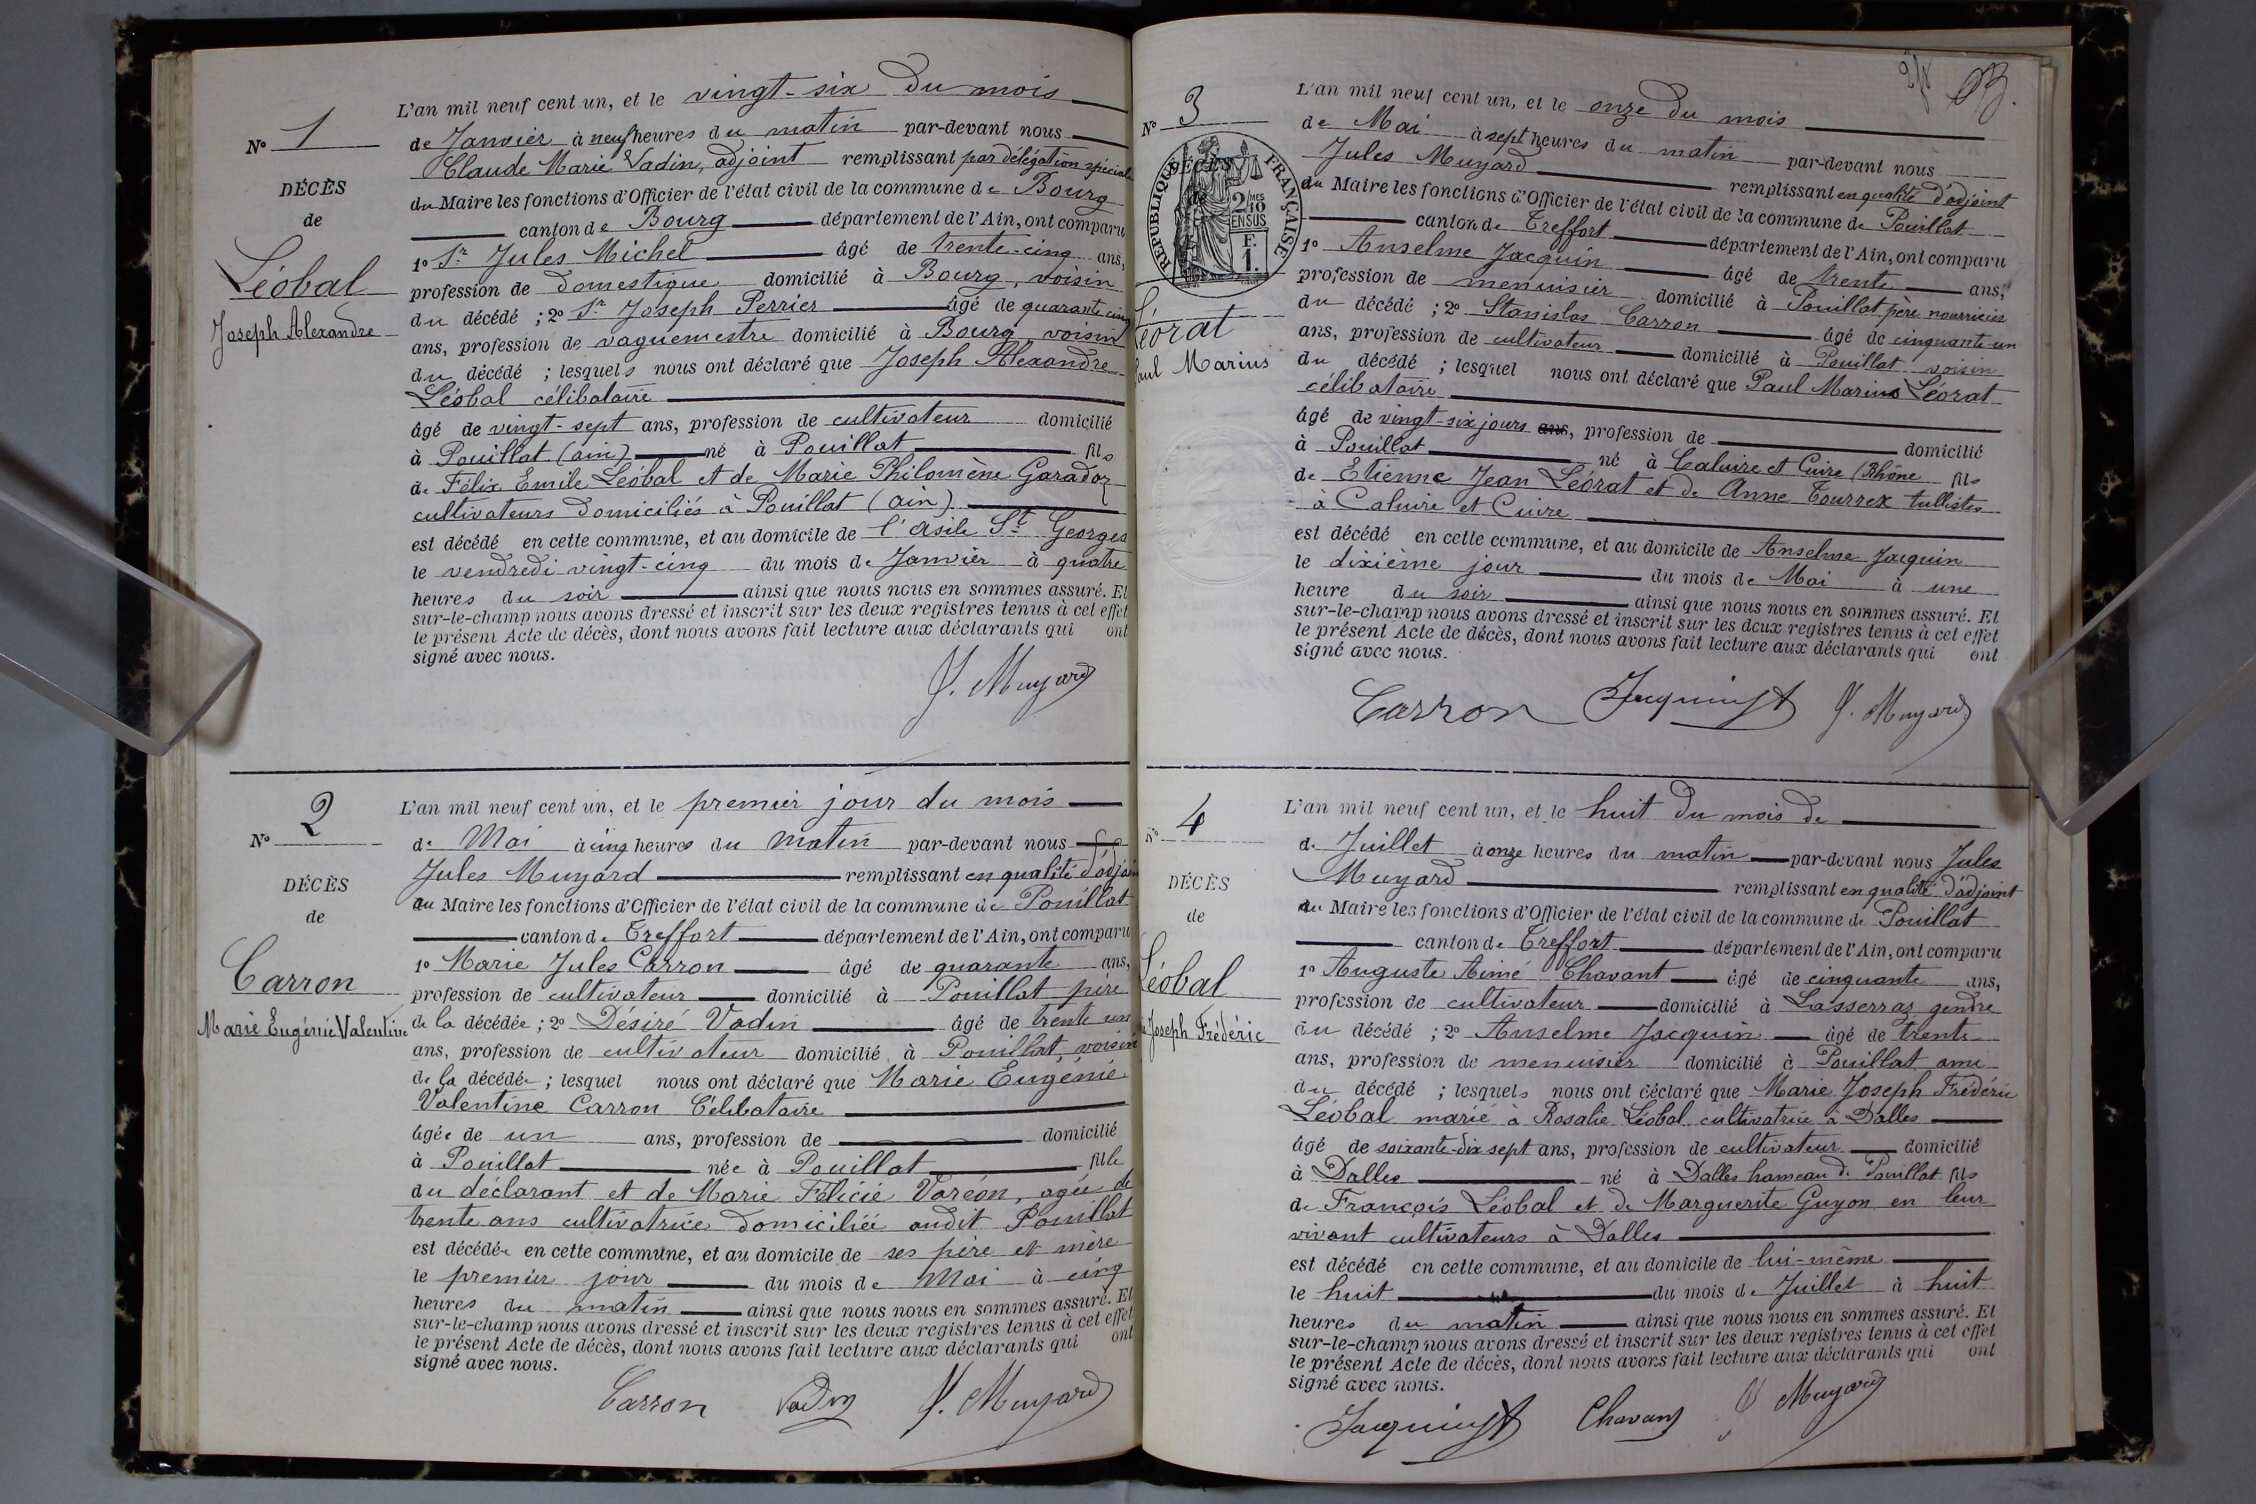 N° 1
DÉCÈS
de
Léobal
Joseph Alexandre
L'an mil neuf cent un, et le vingt-six du mois
de Janvier à neuf heures du matin par-devant nous
Claude Marie Vadin, adjoint remplissant par délégation spéciale
du Maire les fonctions d'Officier de l'état civil de la commune de Bourg
canton de Bourg département de l'Ain, ont comparu
1° Sr Jules Michel âgé de trente-cinq ans,
profession de domestique domicilié à Bourg, voisin
du décédé ; 2° Sr Joseph Perrier âgé de quarante cinq
ans, profession de vaguemestre domicilié à Bourg voisin
du décédé ; lesquels nous ont déclaré que Joseph Alexandre
Léobal célibataire
âgé de vingt-sept ans, profession de cultivateur domicilié
à Pouillat (ain) né à Pouillat fils
de Félix Emile Léobal et de Marie Philomène Garadoz
cultivateurs domiciliés à Pouillat (ain)
est décédé en cette commune, et au domicile de l'asile St Georges
le vendredi vingt-cinq du mois de Janvier à quatre
heures du soir ainsi que nous nous en sommes assuré. Et
sur-le-champ nous avons dressé et inscrit sur les deux registres tenus à cet effet
le présent Acte de décès, dont nous avons fait lecture aux déclarants qui ont
signé avec nous.
J. Muyard
N° 2
DÉCÈS
de
Carron
Marie Eugénie Valentine
L'an mil neuf cent un, et le premier jour du mois
de Mai à cinq heures du matin par-devant nous
Jules Muyard remplissant en qualité d'adjoin
au Maire les fonctions d'Officier de l'état civil de la commune de Pouillat
canton de Treffort département de l'Ain, ont comparu
1° Marie Jules Carron âgé de quarante ans,
profession de cultivateur domicilié à Pouillat père
de la décédée ; 2° Désiré Vadin âgé de trente un
ans, profession de cultivateur domicilié à Pouillat, voisin
de la décédée ; lesquel nous ont déclaré que Marie Eugénie
Valentine Carron Célibataire
âgée de un ans, profession de domicilié
à Pouillat née à Pouillat fille
du déclarant et de Marie Félicie Varéon, agée de
trente ans cultivatrice domiciliée audit Pouillat
est décédée en cette commune, et au domicile de ses père et mère
le premier jour du mois de Mai à cinq
heures du matin ainsi que nous nous en sommes assuré. Et
sur-le-champ nous avons dressé et inscrit sur les deux registres tenus à cet effet
le présent Acte de décès, dont nous avons fait lecture aux déclarants qui ont
signé avec nous.
Carron Vadin J. Muyard
N° 3
DÉCÈS
RÉPUBLIQUE FRANÇAISE
2/10 MES
EN SUS
F.
1.
Léorat
Paul Marius
L'an mil neuf cent un, et le onze du mois
de Mai à sept heures du matin par-devant nous
Jules Muyard remplissant en qualité d'adjoint
au Maire les fonctions d'Officier de l'état civil de la commune de Pouillat
canton de Treffort département de l'Ain, ont comparu
1° Anselme Jacquin âgé de trente ans,
profession de menuisier domicilié à Pouillat père nourricier
du décédé ; 2° Stanislas Carron âgé de cinquante-un
ans, profession de cultivateur domicilié à Pouillat voisin
du décédé ; lesquel nous ont déclaré que Paul Marius Léorat
célibataire
âgé de vingt-six jours ans, profession de domicilié
à Pouillat né à Caluire et Cuire (Rhône fils
de Etienne Jean Léorat et de Anne Tourrex tullistes
à Caluire et Cuire
est décédé en cette commune, et au domicile de Anselme Jacquin
le dixième jour du mois de Mai à une
heure du soir ainsi que nous nous en sommes assuré. Et
sur-le-champ nous avons dressé et inscrit sur les deux registres tenus à cet effet
le présent Acte de décès, dont nous avons fait lecture aux déclarants qui ont
signé avec nous.
Carron Jacquin J. Muyard
N° 4
DÉCÈS
de
Léobal
Joseph Frédéric
L'an mil neuf cent un, et le huit du mois de
de Juillet à onze heures du matin par-devant nous Jules
Muyard remplissant en qualité d'adjoint
au Maire les fonctions d'Officier de l'état civil de la commune de Pouillat
canton de Treffort département de l'Ain, ont comparu
1° Auguste Aimé Chavant âgé de cinquante ans,
profession de cultivateur domicilié à Lasserraz gendre
du décédé ; 2° Anselme Jacquin âgé de trente
ans, profession de menuisier domicilié à Pouillat ami
du décédé ; lesquels nous ont déclaré que Marie Joseph Frédéric
Léobal marié à Rosalie Léobal cultivatrice à Dalles
âgé de soixante-dix sept ans, profession de cultivateur domicilié
à Dalles né à Dalles hameau de Pouillat fils
de François Léobal et de Marguerite Guyon en leur
vivant cultivateurs à Dalles
est décédé en cette commune, et au domicile de lui-même
le huit du mois de Juillet à huit
heures du matin ainsi que nous nous en sommes assuré. Et
sur-le-champ nous avons dressé et inscrit sur les deux registres tenus à cet effet
le présent Acte de décès, dont nous avons fait lecture aux déclarants qui ont
signé avec nous.
Jacquin Chavant J Muyard